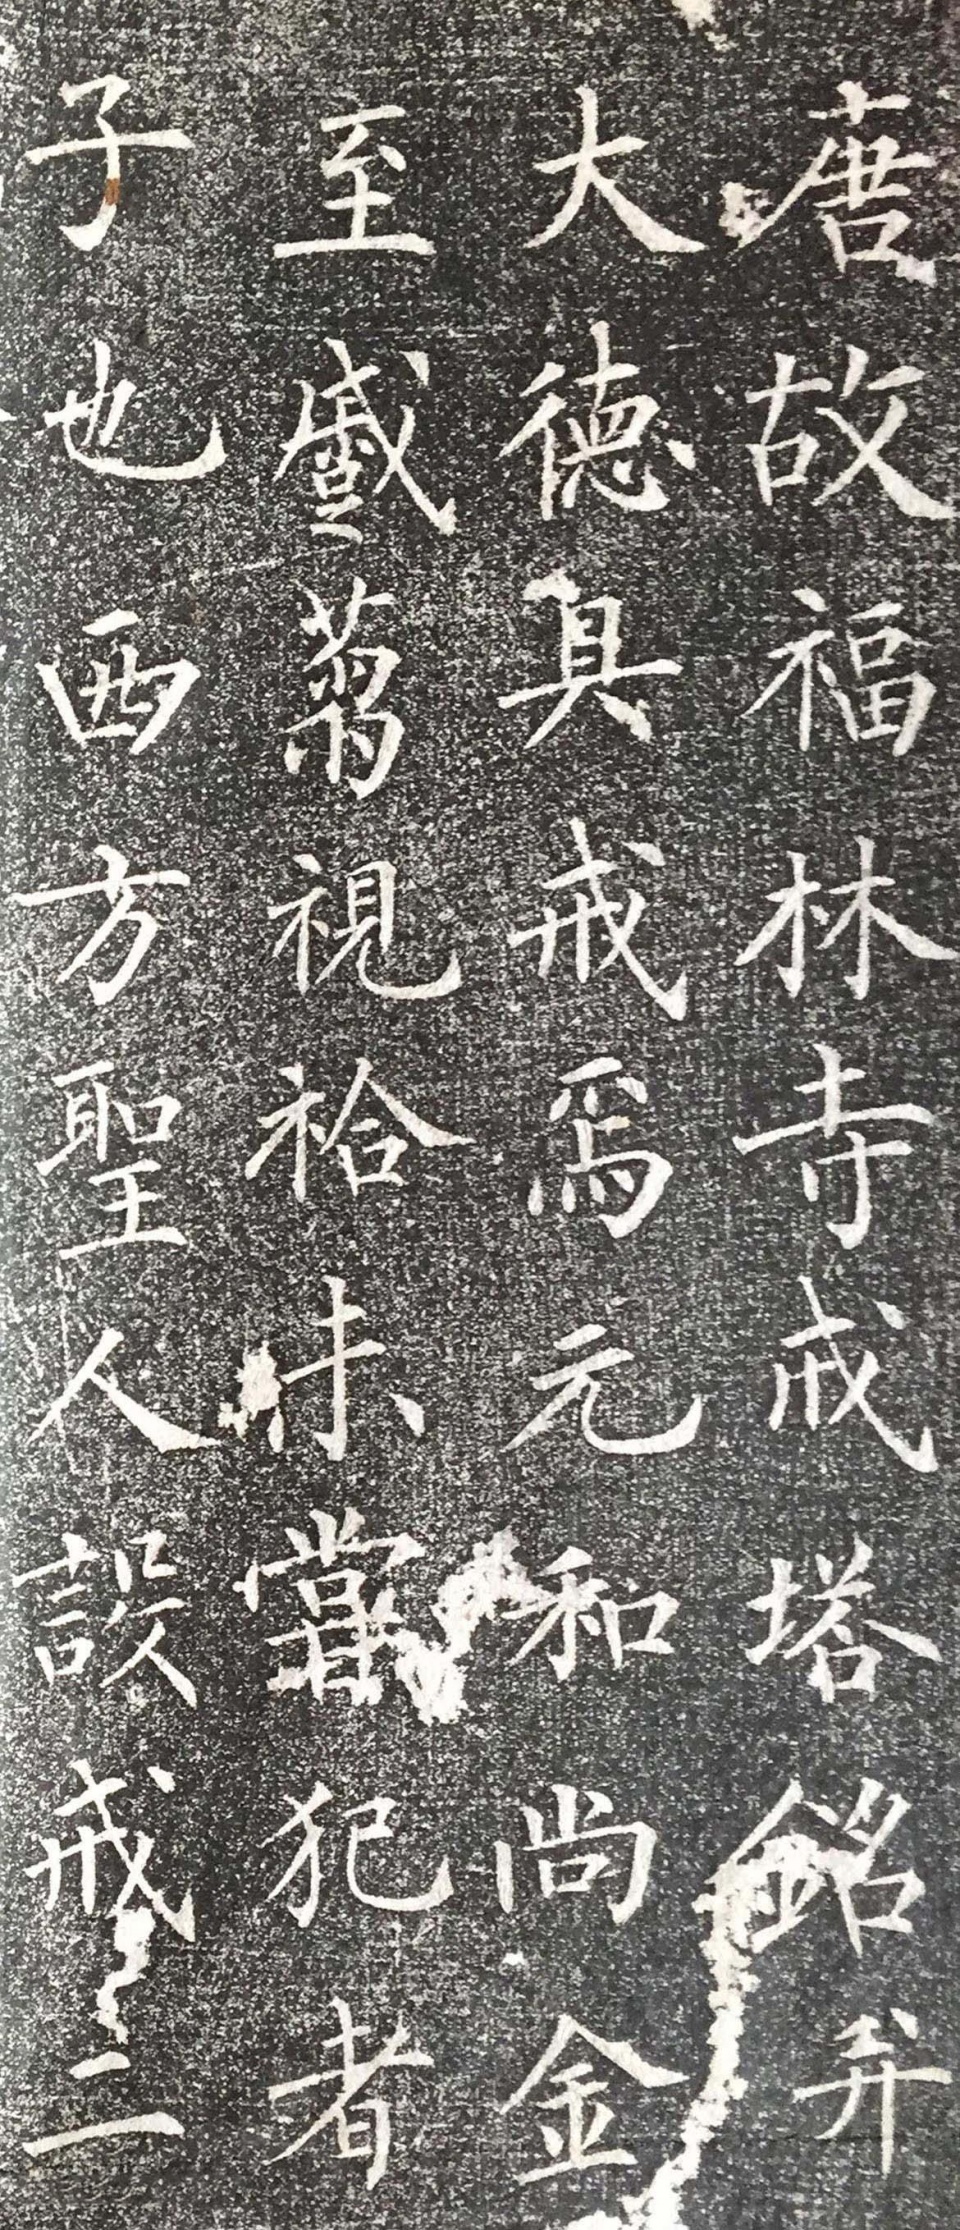 唐故福林寺戒塔銘并
大德具戒爲元和尚金
至戲蒭視袷未嘗犯者
子也西方聖人設戒二